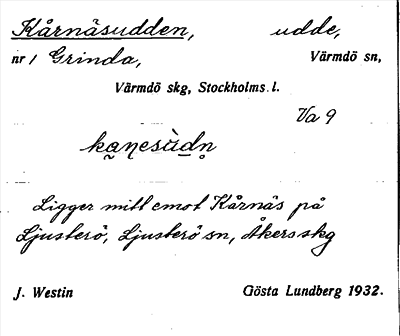 Kårnäsudden, udde,
nr 1 Grinda, Värmdö sn,
Värmdö skg, Stockholms l.
Va 9
Ligger mitt emot Kårnäs på
Ljusterö, Ljusterö sn, Åkers skg
J. Westin Gösta Lundberg 1932.